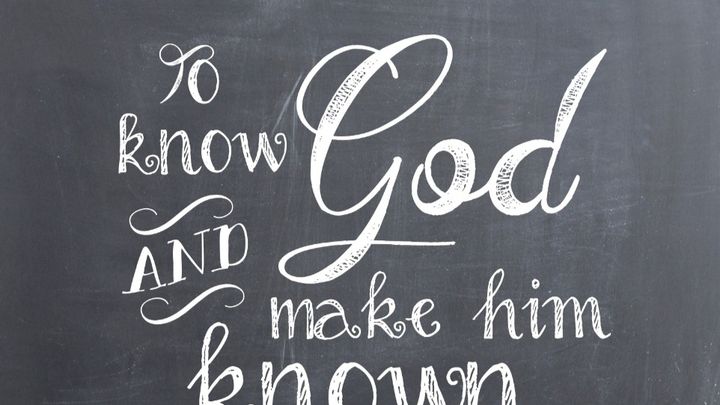 To
know God
AND
make him
known